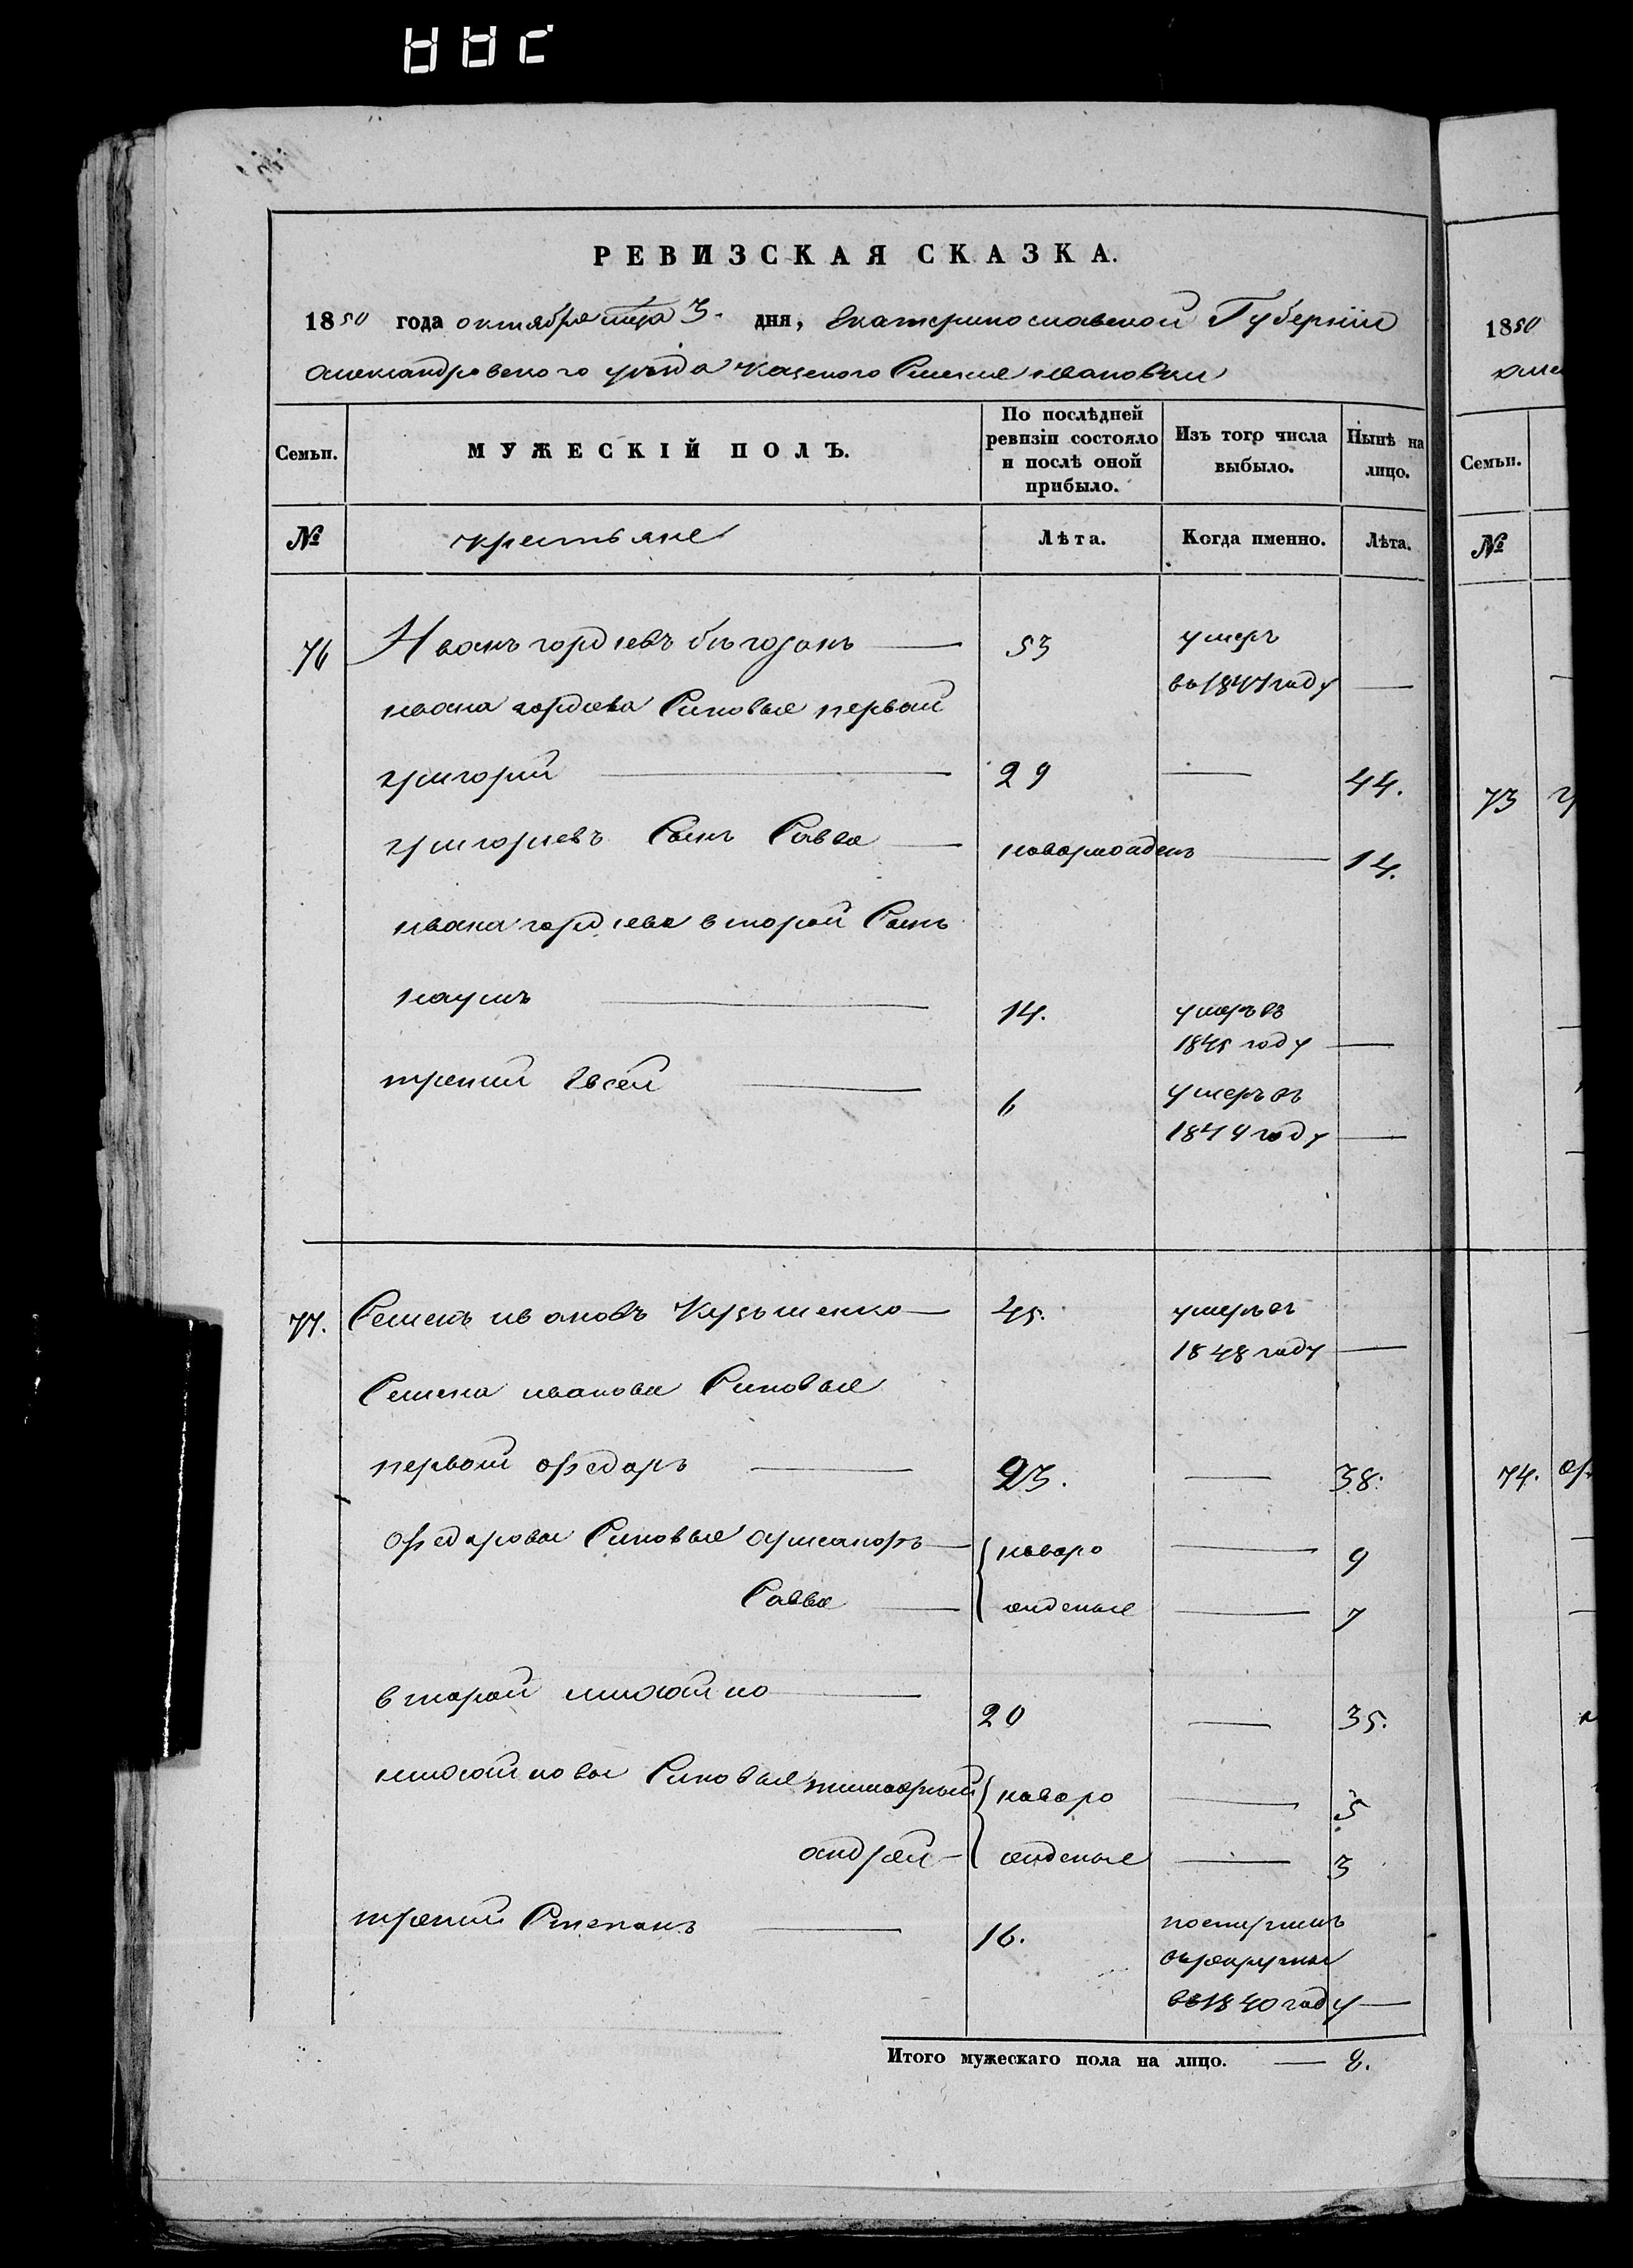 РЕВИЗСКАЯ СКАЗКА.
1850 года октября мца 3. дня, Екатеринославской Губерніи
Александровского уезда Казеного Селенія Ивановки
Семьи. МУЖЕСКІЙ ПОЛЪ. По послѣдней ревизіи состояло и послѣ оной прибыло. Изъ того числа выбыло. Нынѣ на лицо.
№ крестьяне Лѣта. Когда именно. Лѣта.
76 Иванъ гордѣевъ 53 умеръ
во 1847 году
ивана гордѣева Синовья первой
григорий 29 44.
григорьевъ Сынъ Савва новорожденъ 14.
ивана гордѣева второй Сынъ
наумъ 14. умеръ въ
1845 году
третий Евсей 6 умеръ въ
1844 году
77. Семенъ ивановъ Кузьменко 45. умеръ въ
1848 году
Семена иванова Синовья
первой Федоръ 23. 38.
Федорова Синовья новоро 9
Савва жденые 7
второй михайло 20 35.
михайлова Синовья тимофей новоро 5
андрей жденые 3
третий Степанъ 16. поступилъ
въ рекруты
въ 1840 году
Итого мужескаго пола на лицо. 8.
1850
Семьи.
№
73
74.